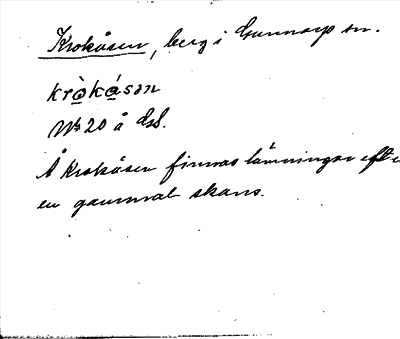 Krokåsen, berg i Gunnarp sn.
kròkásən
No 20 å Gsd.
Å Krokåsen finnas lämningar efter
en gammal skans.